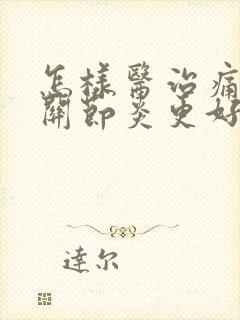 怎樣醫治痛
關節炎更好
達尔